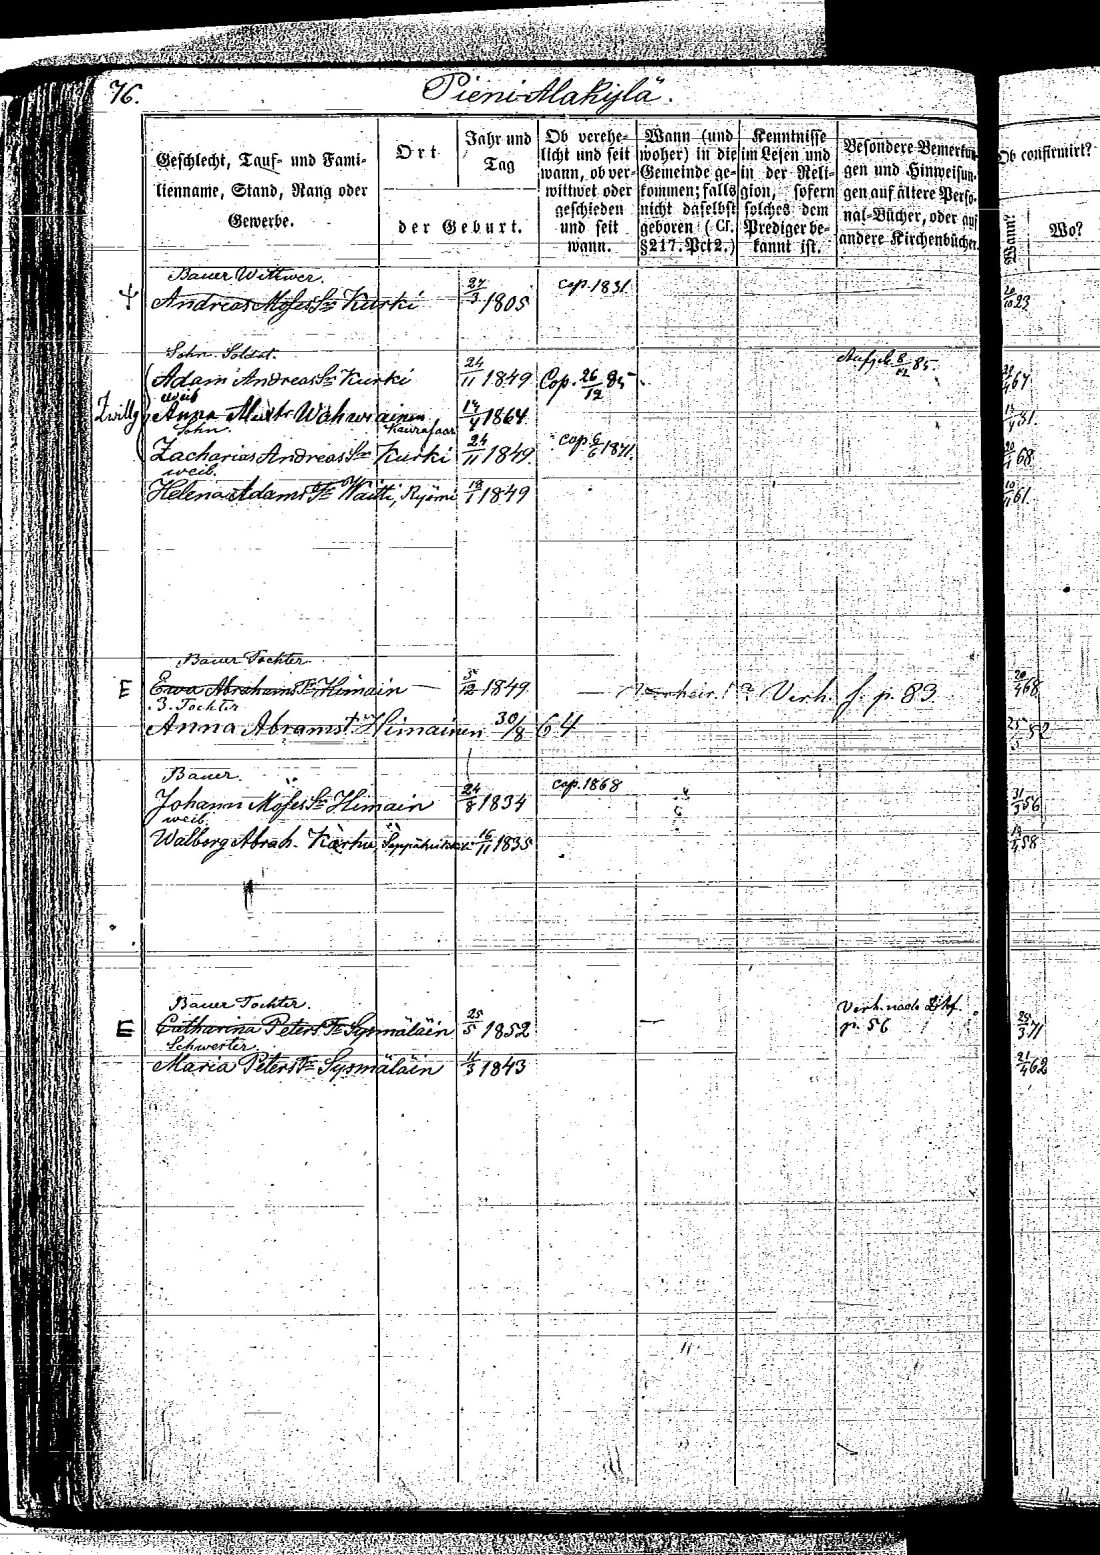 76. Pieni Makylä.
Geschlecht, Tauf- und Fami-
lienname, Stand, Rang oder
Gewerbe.
Ort
Jahr und
Tag
der Geburt.
Ob verehe-
licht und seit
wann, ob ver-
wittwet oder
geschieden
und seit
wann.
Wann (und
woher) in die
Gemeinde ge-
kommen; falls
nicht daselbst
geboren (Cf.
§217. Pct 2.)
Kenntnisse
im Lesen und
in der Reli-
gion, sofern
solches dem
Prediger be-
kannt ist.
Besondere Bemerkun-
gen und Hinweisun-
gen auf ältere Perso-
nal-Bücher, oder auf
andere Kirchenbücher.
Ob confirmirt?
Wann?
Wo?
Bauer Wittwer.
Andreas Moses Sn Kurki 27/3 1805 cop. 1831 20/10 23
Sohn. Soldat.
Adam Andreas Sn Kurki 24/11 1849 Cop. 26/12 85 Aufgeb. 8/12 85. 67
Weib
Zwillg Anna Wahwiainen 17/4 1864 81.
Sohn. Kaurasaar
Zacharias Andreas Sn Kurki 24/11 1849. cop. 6/6 1871. 68
weib.
Helena Adams Tr Waitti, Ryömi 18/1 1849 61.
Bauer Tochter
E Ewa Abrahams Tr Himain 5/12 1849. Verh. f. p. 83. 20/4 68
3. Tochter
Anna Abramst. Himainen 30/8 64 82
Bauer.
Johann Moses Sn Himain 24/8 1834 cop. 1868 31/3 56
weib.
Walborg Abrah. Kärhu, 16/11 1835 58
Bauer Tochter.
E Catharina Peters Tr Sysmäläin 25/5 1852 Verh. nach
p. 56 71
Schwester.
Maria Peters Tr Sysmäläin 4/3 1843 21/4 62